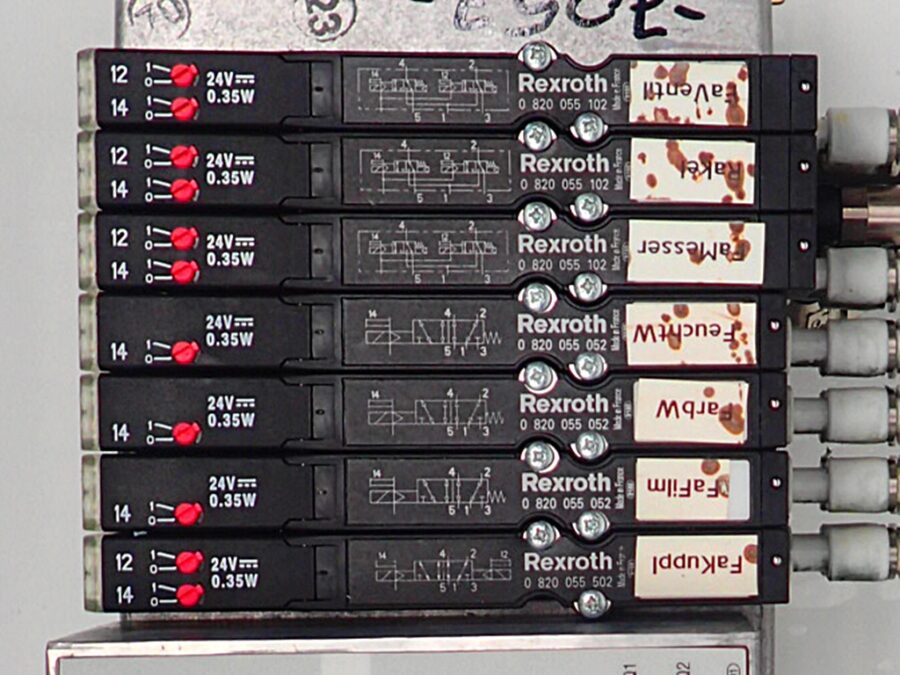 23
12 1 0 24V 0.35W 14 12 4 2 5 1 3 Rexroth 0 820 055 102 Made in France FaVentil
14 1 0
12 1 0 24V 0.35W 14 12 4 2 5 1 3 Rexroth 0 820 055 102 Made in France Rakel
14 1 0
12 1 0 24V 0.35W 14 12 4 2 5 1 3 Rexroth 0 820 055 102 Made in France FaMesser
14 1 0
24V 0.35W 14 4 2 5 1 3 Rexroth 0 820 055 052 Made in France FeuchtW
14 1 0
24V 0.35W 14 4 2 5 1 3 Rexroth 0 820 055 052 Made in France FarbW
14 1 0
24V 0.35W 14 4 2 5 1 3 Rexroth 0 820 055 052 Made in France FaFilm
14 1 0
12 1 0 24V 0.35W 14 4 2 12 5 1 3 Rexroth 0 820 055 502 FaKuppl
14 1 0
Q1
Q2